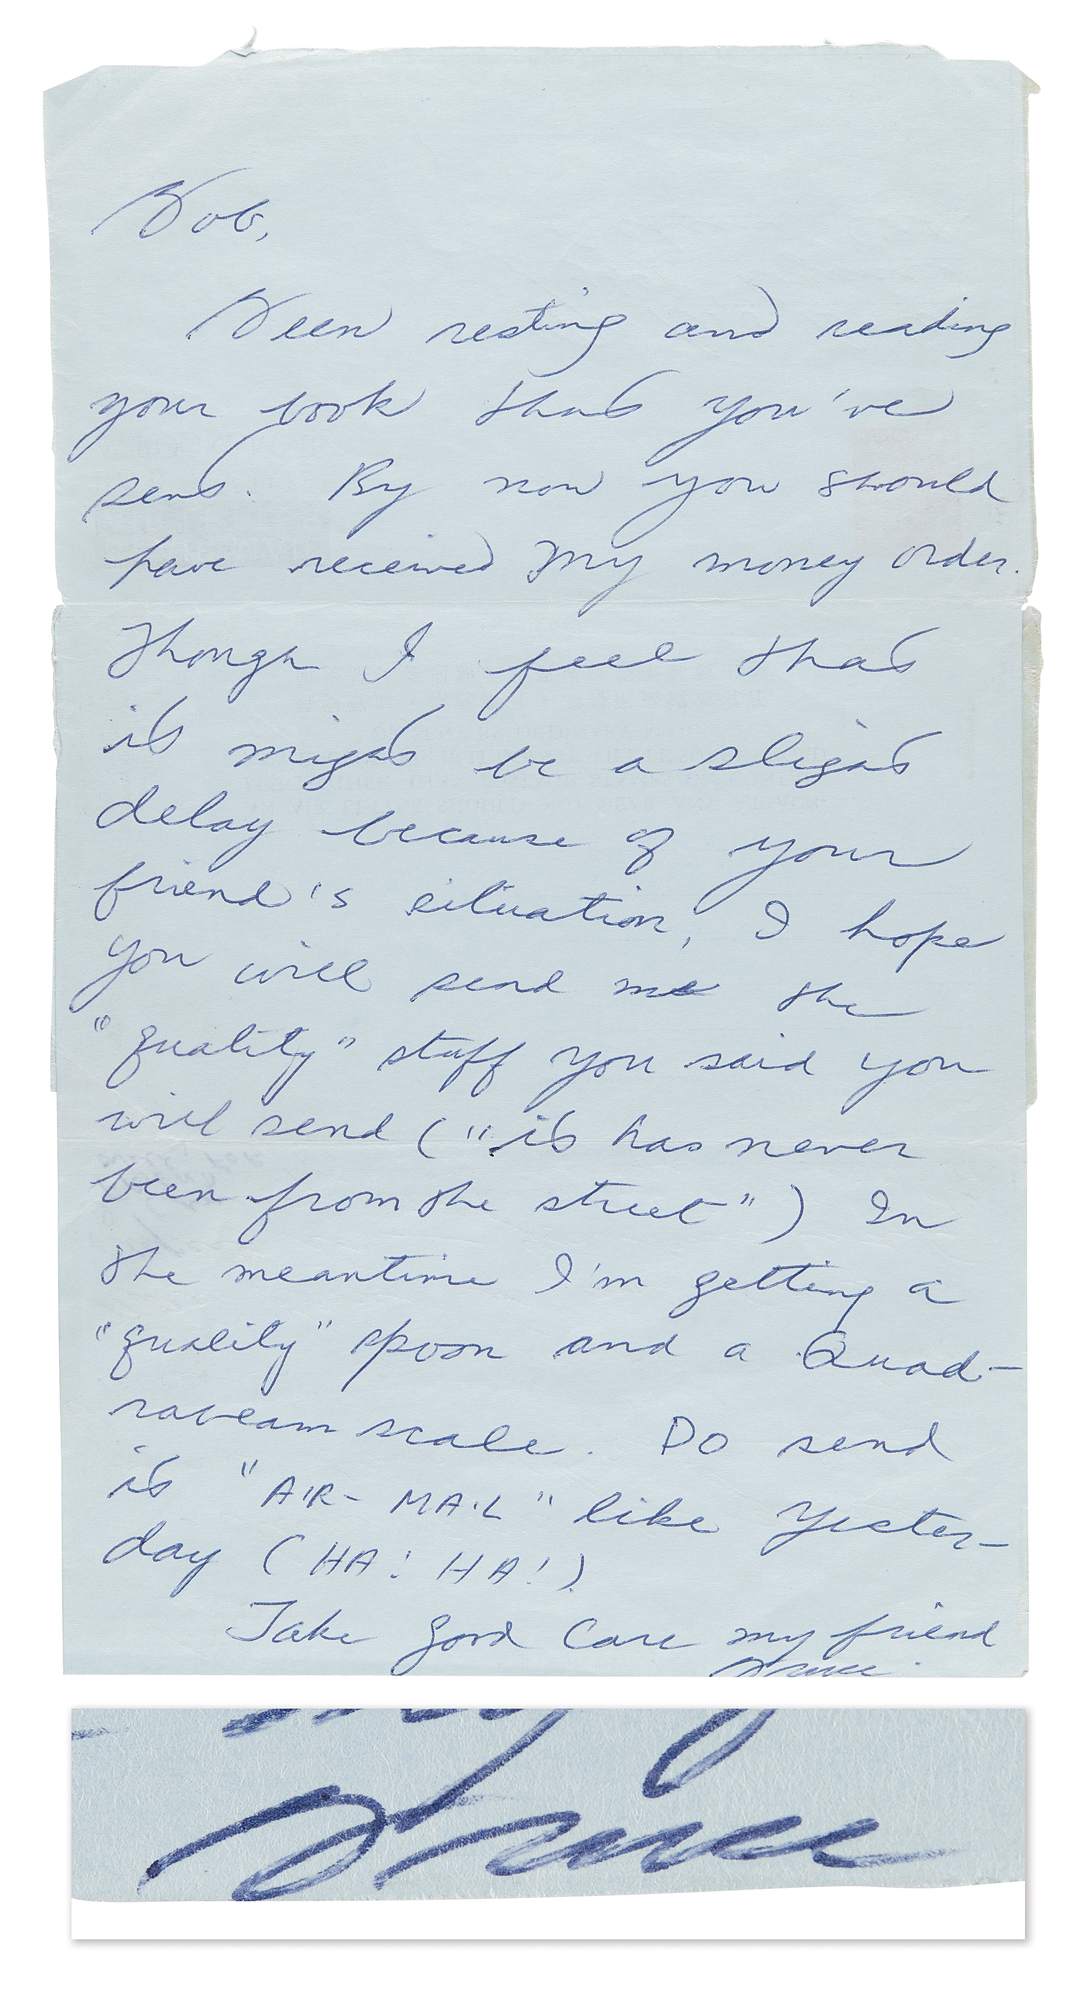 Bob,
Been resting and reading
your book that you've
sent. By now you should
have received my money order.
Though I feel that
it might be a slight
delay because of your
friend's situation, I hope
you will send me the
"quality" stuff you said you
will send ("it has never
been from the street") In
the meantime I'm getting a
"quality" spoon and a Quad-
rabeam scale. Do send
it "AIR-MAIL" like yester-
day (HA! HA!)
Take good care my friend
Bruce
Bruce